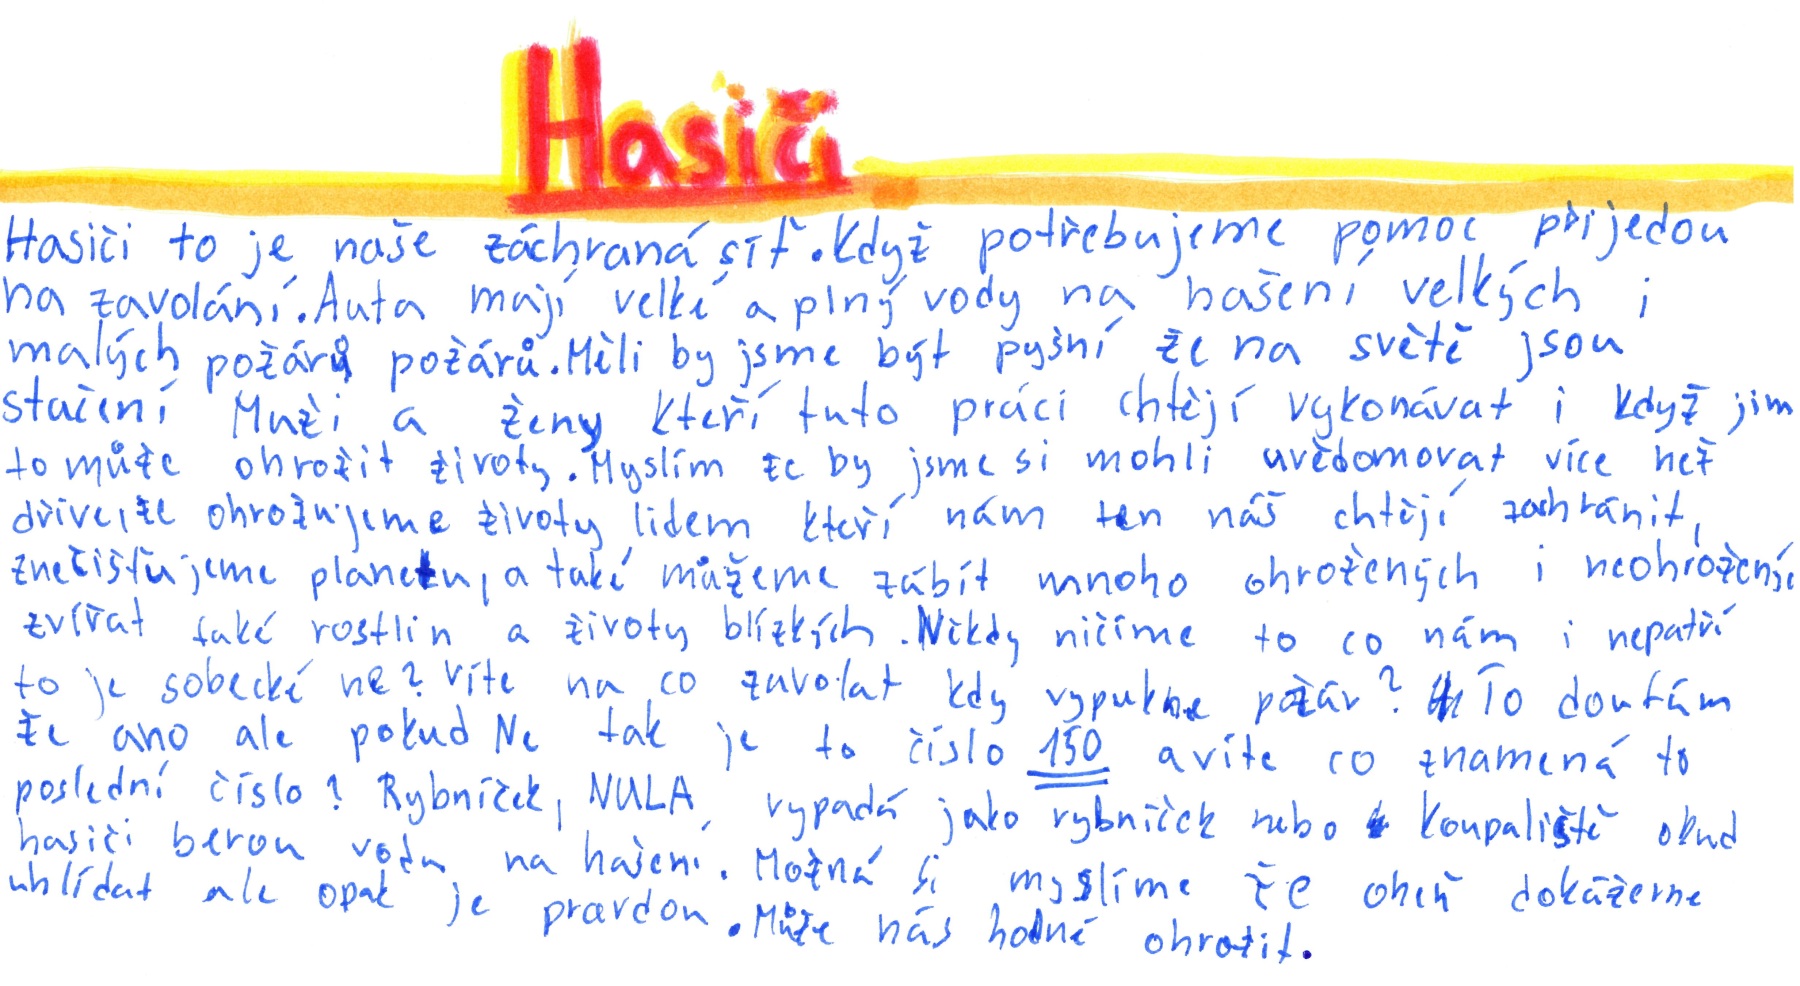 Hasiči
Hasiči to je naše záchraná síť. Když potřebujeme pomoc přijedou
na zavolání. Auta mají velké a plný vody na hašení velkých i
malých požárů požárů. Měli by jsme být pyšní že na světě jsou
stačení Muži a ženy kteří tuto práci chtějí vykonávat i když jim
to může ohrožit životy. Myslím že by jsme si mohli uvědomovat více než
dřive, že ohrožujeme životy lidem kteří nám ten náš chtějí zachránit,
znečišťujeme planetu, a také můžeme zábít mnoho ohrožených i neohrožených
zvířat také rostlin a životy blízkých. Někdy ničíme to co nám i nepatří
to je sobecké ne? Víte na co zavolat kdy vypukne požár? To doufám
že ano ale pokud Ne tak je to číslo 150 a víte co znamená to
poslední číslo? Rybníček, NULA vypadá jako rybníček nebo koupaliště okud
hasiči berou vodu na hašení. Možná si myslíme že oheň dokážeme
uhlídat ale opak je pravdou. Může nás hodně ohrozit.